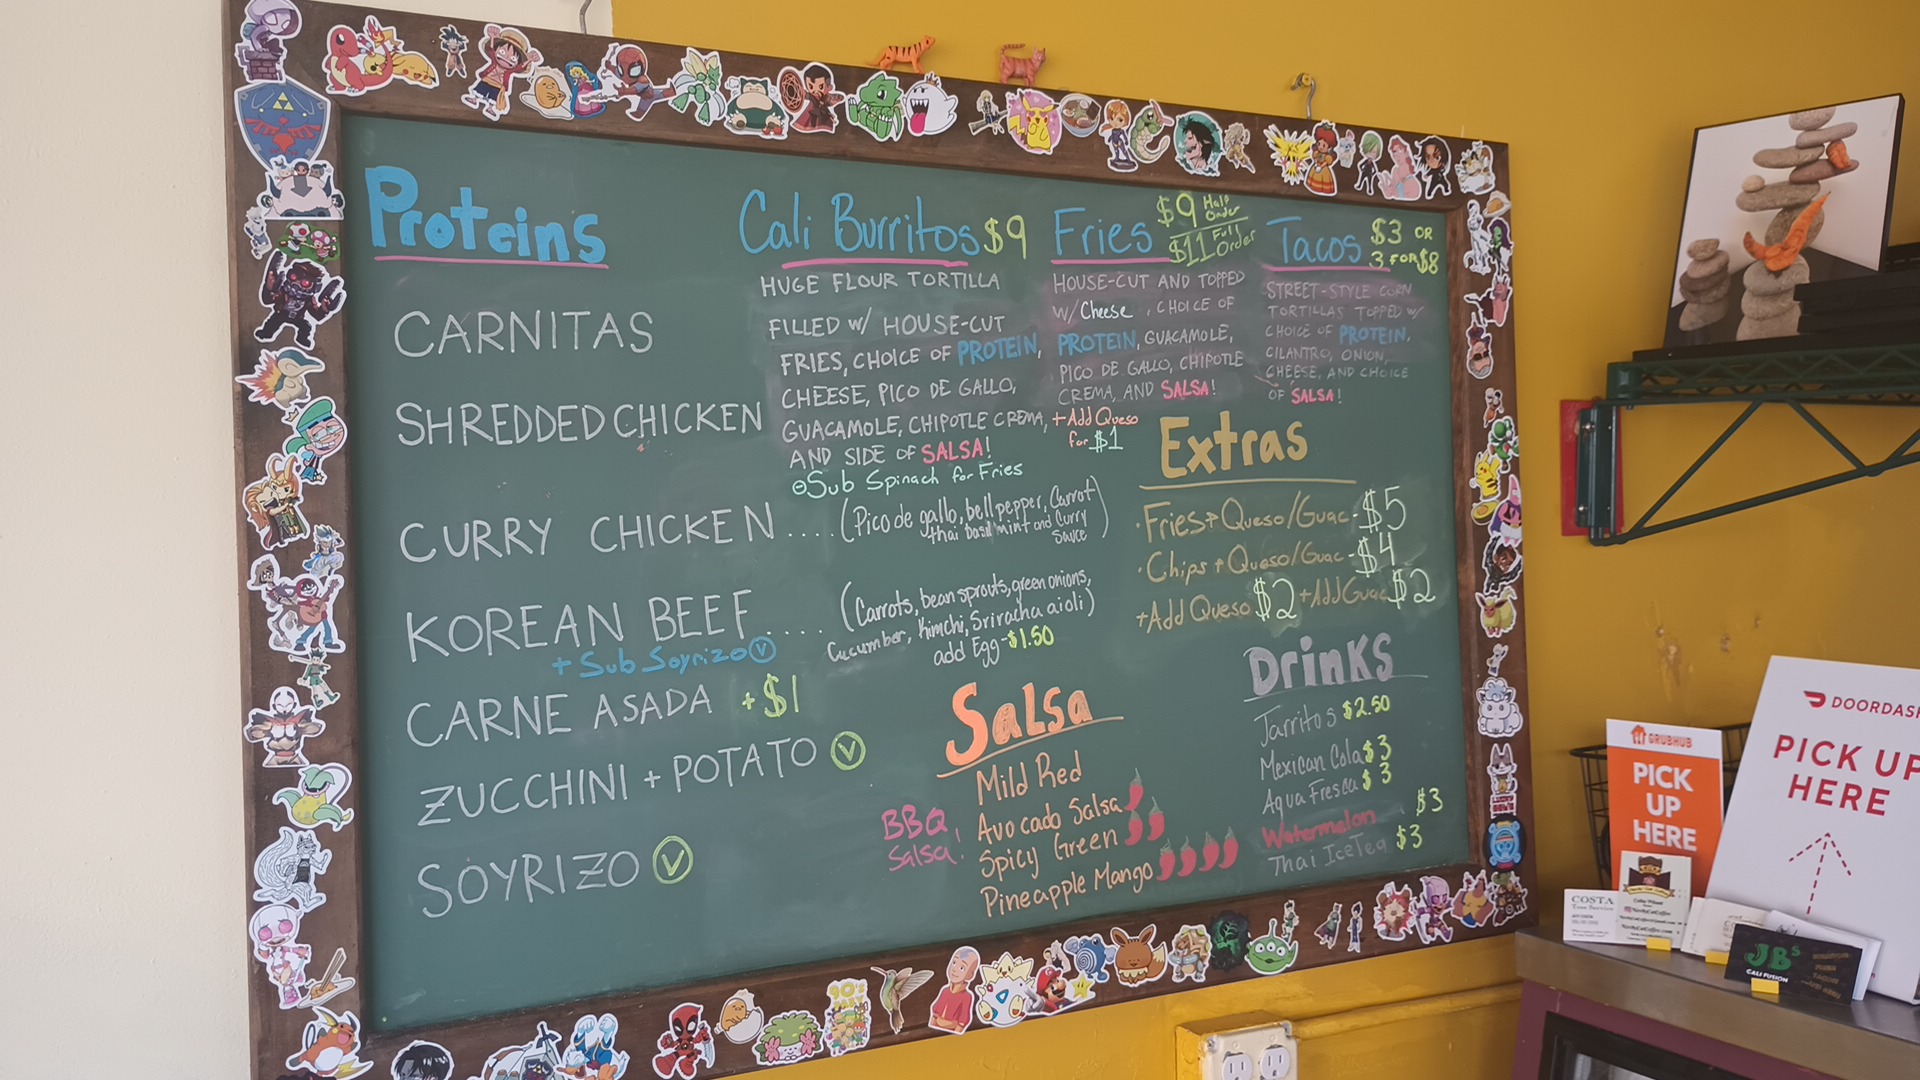 Proteins
CARNITAS
SHREDDED CHICKEN
CURRY CHICKEN....
(Pico de gallo, bell pepper, Carrot
thai basil mint and Curry
Sauce)
KOREAN BEEF....
+ Sub Soyrizo Ⓥ
(Carrots, bean sprouts, green onions,
Cucumber, Kimchi, Sriracha aioli)
add Egg-$1.50
CARNE ASADA +$1
ZUCCHINI + POTATO Ⓥ
SOYRIZO Ⓥ
Cali Burritos $9
HUGE FLOUR TORTILLA
FILLED W/ HOUSE-CUT
FRIES, CHOICE OF PROTEIN,
CHEESE, PICO DE GALLO,
GUACAMOLE, CHIPOTLE CREMA,
AND SIDE OF SALSA!
Sub Spinach for Fries
Fries $9 Half Order
$11 Full Order
HOUSE-CUT AND TOPPED
W/ Cheese, CHOICE OF
PROTEIN, GUACAMOLE,
PICO DE GALLO, CHIPOTLE
CREMA, AND SALSA!
+Add Queso
for $1
Tacos $3 OR
3 FOR $8
STREET-STYLE CORN
TORTILLAS TOPPED W/
CHOICE OF PROTEIN,
CILANTRO, ONION,
CHEESE, AND CHOICE
OF SALSA!
Extras
·Fries+Queso/Guac-$5
·Chips+Queso/Guac-$4
+Add Queso $2 +Add Guac $2
Salsa
Mild Red
Avocado Salsa
Spicy Green
Pineapple Mango
BBQ
Salsa!
Drinks
Jarritos $2.50
Mexican Cola $3
Aqua Fresca $3
Watermelon $3
Thai Icetea $3
GRUBHUB
PICK
UP
HERE
DOORDASH
PICK UP
HERE
COSTA
JB's
CALI FUSION